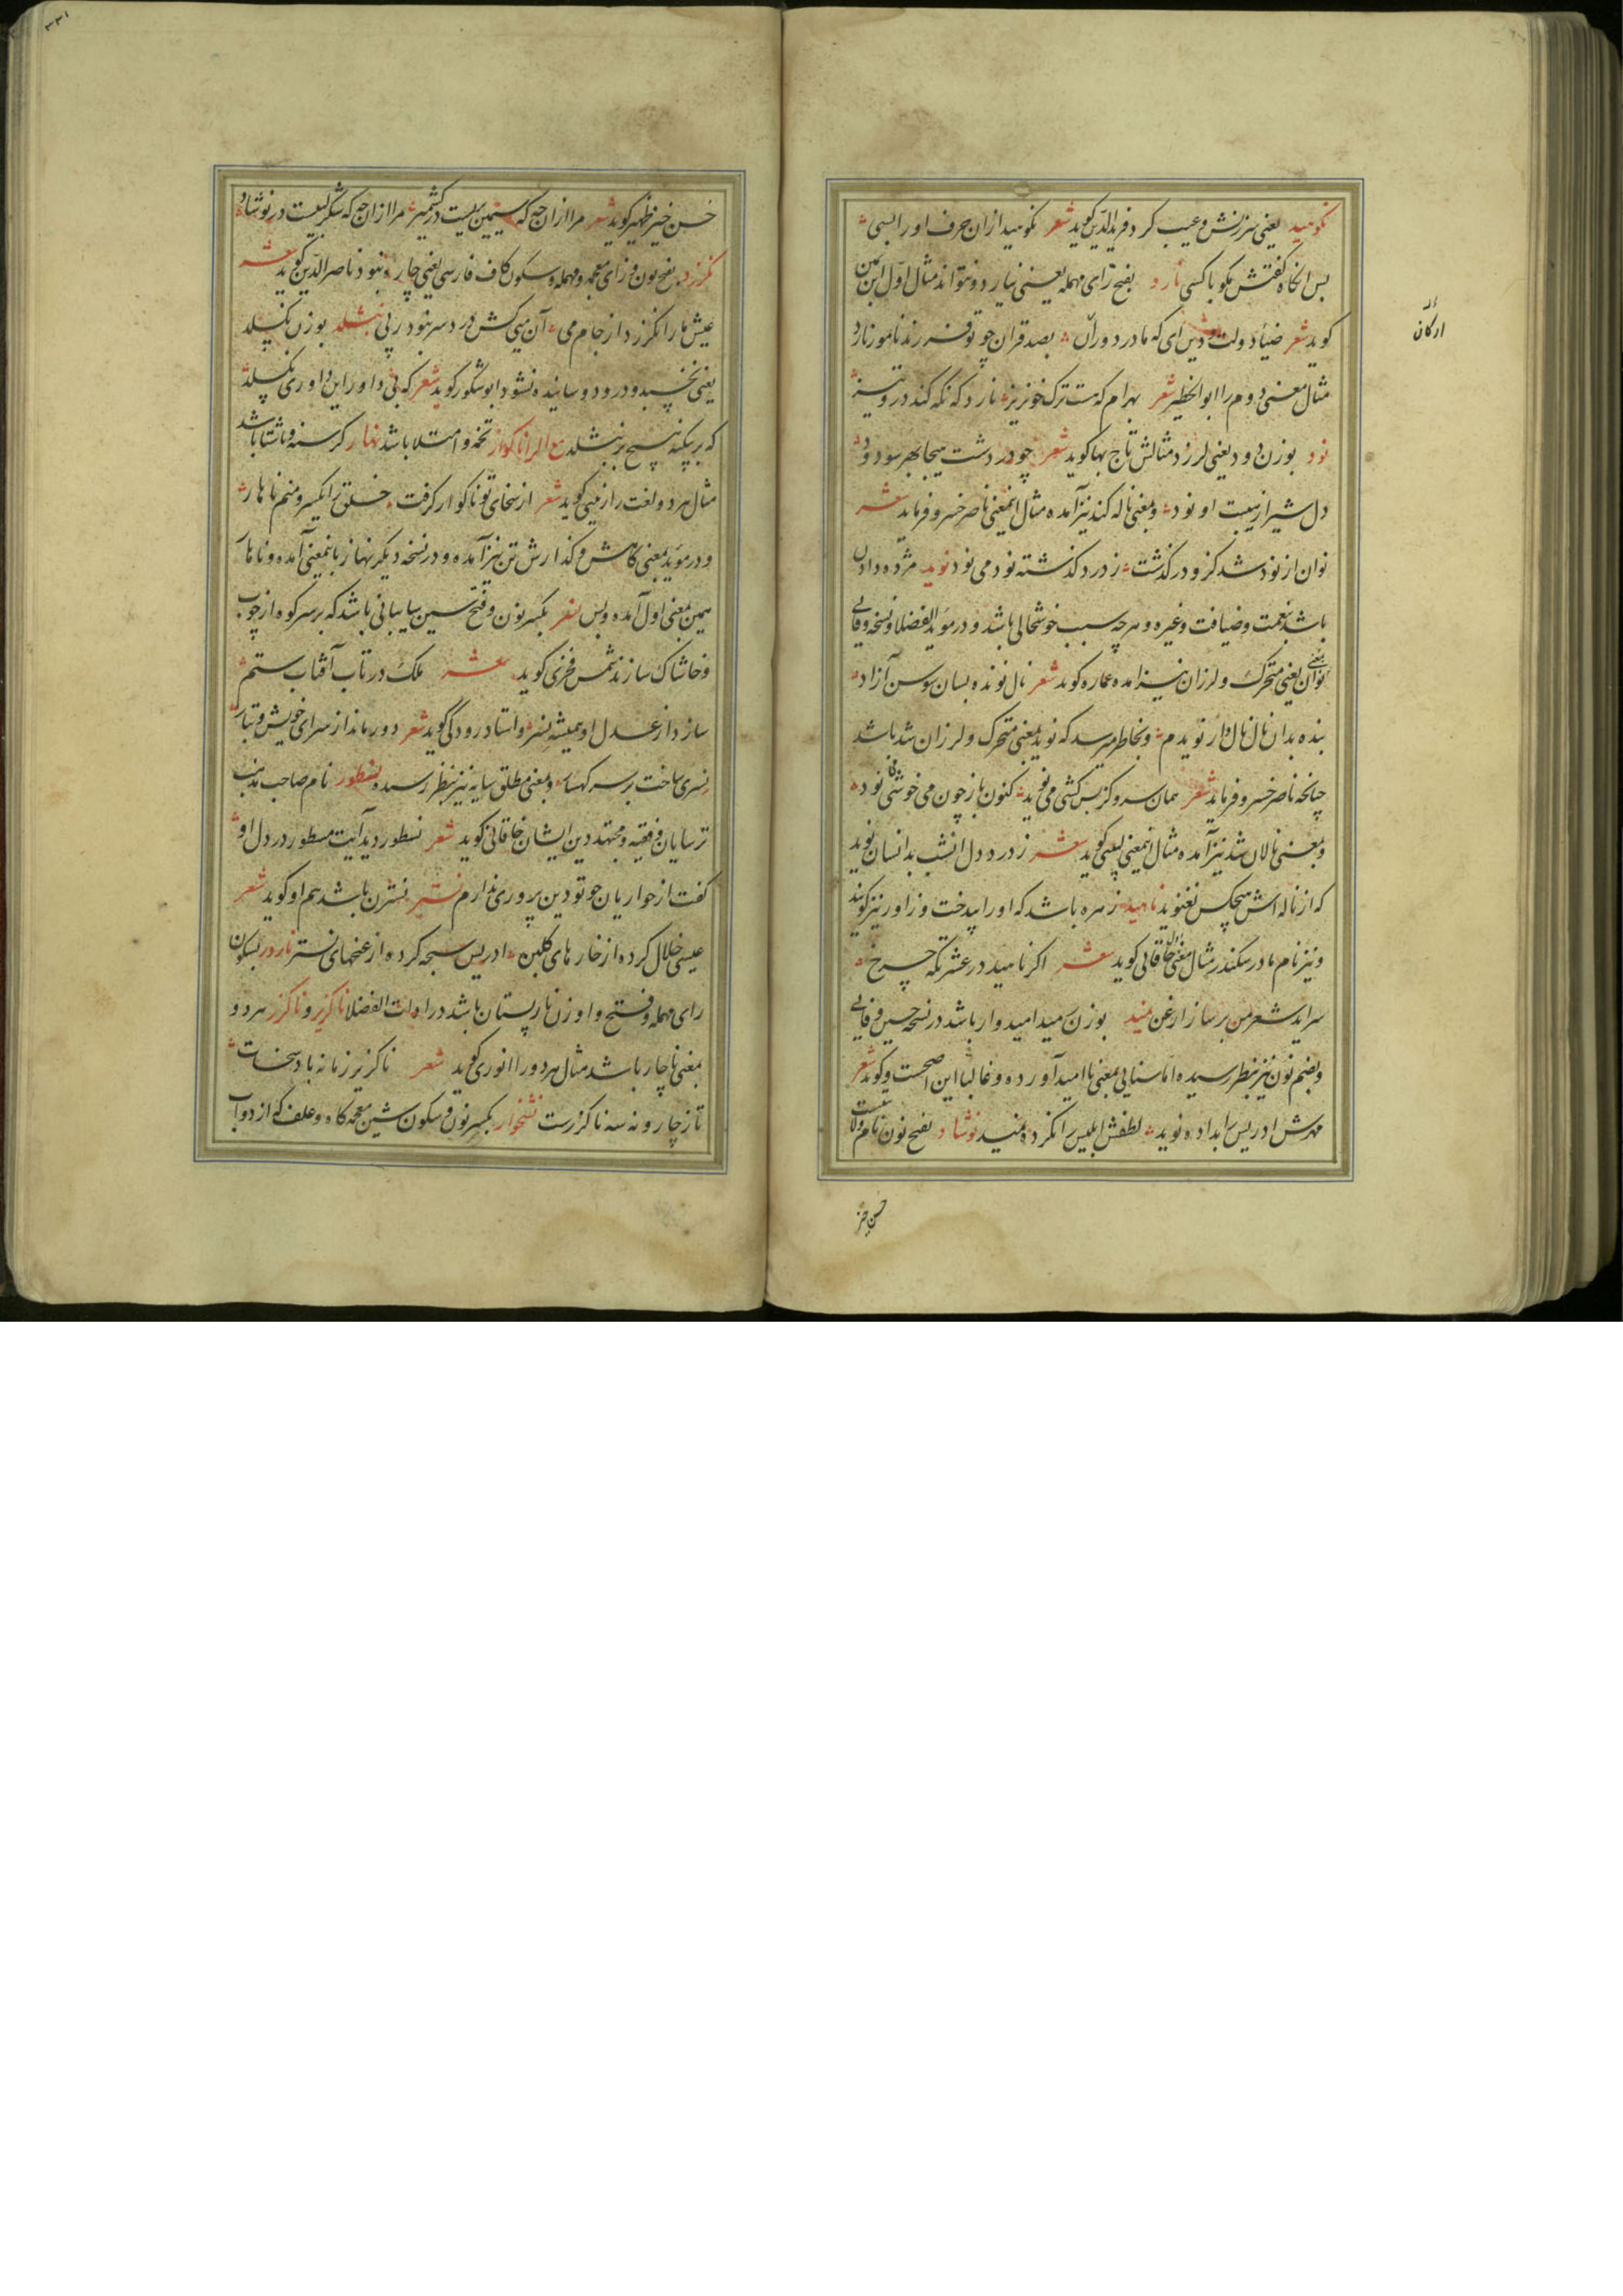 نکوهید یعنی سرزنش و عیب کرد فریدالدین کوید شعر نکوهید ازان حرف او را بسی
پس انکاه کفتش مکو با کسی نارد بفتح رای مهمله یعنی نیارد و نتواند مثال اول ابن یمین
کوید شعر ضیاء دولت و دین ای که مادر دوران بصد قران چو تو فرزند نامور نارد
مثال معنی دوم را ابوالخطیر شعر بهرام که هست ترک خونریز نارد که نکه کند درو تیز
نود بوزن دود یعنی لرزد مثالش تاج بها کوید شعر چو در دشت هیجا بهر سو دود
دل شیر از هیبت او نود و بمعنی ناله کند نیز آمده مثال اینمعنی ناصر خسرو فرماید شعر
نوان از نود شد کزو در کذشت ز درد کذشته نود می نود نوید مژده دادن
باشد بنعمت و ضیافت و غیره و هر چه سبب خوشحالی باشد و در مؤید الفضلا و نسخه وفایی
بمعنی نوان یعنی متحرک و لرزان نیز امده عماره کوید شعر نال نونده بسان سوسن آزاد
بنده بدان نال نال وار نویدم و بخاطر میرسد که نوید بمعنی متحرک و لرزان شد باشد
چنانچه ناصر خسرو فرماید شعر همان سرو کز بس کشی می نوید کنون باز چون می خوشی نود
و بمعنی نالان شد نیز آمده مثال اینمعنی لبیبی کوید شعر ز درد دل انشب بدانسان نوید
که از ناله اش هیچکس نغنوید ناهید زهره باشد که او را بیدخت و زاور نیز کویند
و نیز نام مادر سکندر مثال معنی اول خاقانی کوید شعر اکر ناهید در عشرتکه چرخ
سراید شعر من بر ساز ارغن مید بوزن مید امیدوار باشد در نسخه حسین وفایی
و بضم نون نیز بنظر رسیده اما سنایی بمعنی ناامید آورده و غالبا این اصحست و کوید شعر
مهرش ادریس را بداده نوید لطفش ابلیس را نکرده نمید نوشاد بفتح نون نام ولایتیست
ارکان
حسن خیز
حسن خیز ظهیر کوید شعر مرا ازان چه که سیمین بریست در کشمیر مرا ازان چه که شکر لبیست در نوشاد
نکزرد بفتح نون و زای معجمه و مهمله و سکون کاف فارسی یعنی چاره نبود ناصرالدین کوید شعر
عیش ما را نکزرد از جام می آن می کش درد سر نبود ز پی نبشلد بوزن نکسلد
یعنی نچسبد و در دوسانیده نشود ابوشکور کوید شعر که بی داور این داوری نکسلد
که بر بیکنه هیچ بر نبشلد مع الرا ناکوار تخمه و امتلا باشد نهار کرسنه و ناشتا باشد
مثال هر دو لغت را زینتی کوید شعر از سخای تو ناکوار کرفت خلق را یکسر و منم ناهار
و در مؤید بمعنی کاهش و کذارش تن نیز آمده و در نسخه دیکر نهاز باینمعنی آمده و ناهار
بهمین معنی اول آمده و بس نسر بکسر نون و فتح سین سایبانی باشد که بر سر کوه از چوب
و خاشاک سازند شمس فخری کوید شعر ملک در تاب آفتاب ستم
سازد از عدل او همیشه نسر و استاد رودکی کوید شعر دور ماند از سرای خویش و تبار
نسری ساخت بر سر کهسار و بمعنی مطلق سایه نیز بنظر رسیده نسطور نام صاحب مذهب
ترسایان و فقیه و مجتهد دین ایشان خاقانی کوید شعر نسطور دید آیت مسطور در دل او
کفت از حواریان چو تو دین پروری ندارم نستر نسترن باشد هم او کوید شعر
عیسی خلال کرده از خارهای کلبن ادریس سبحه کرده از غنچهای نستر ناردر بسکون
رای مهمله و فتح واو زن نارپستان باشد در ادات الفضلا ناکزیر و ناکزر هر دو
بمعنی ناچار باشد مثال هر دو را انوری کوید شعر ناکزیر زمانه باد سخات
تا ز چار و نه سه ناکزرست نشخوار بکسر نون و سکون شین معجمه کاه و علف که از دواب